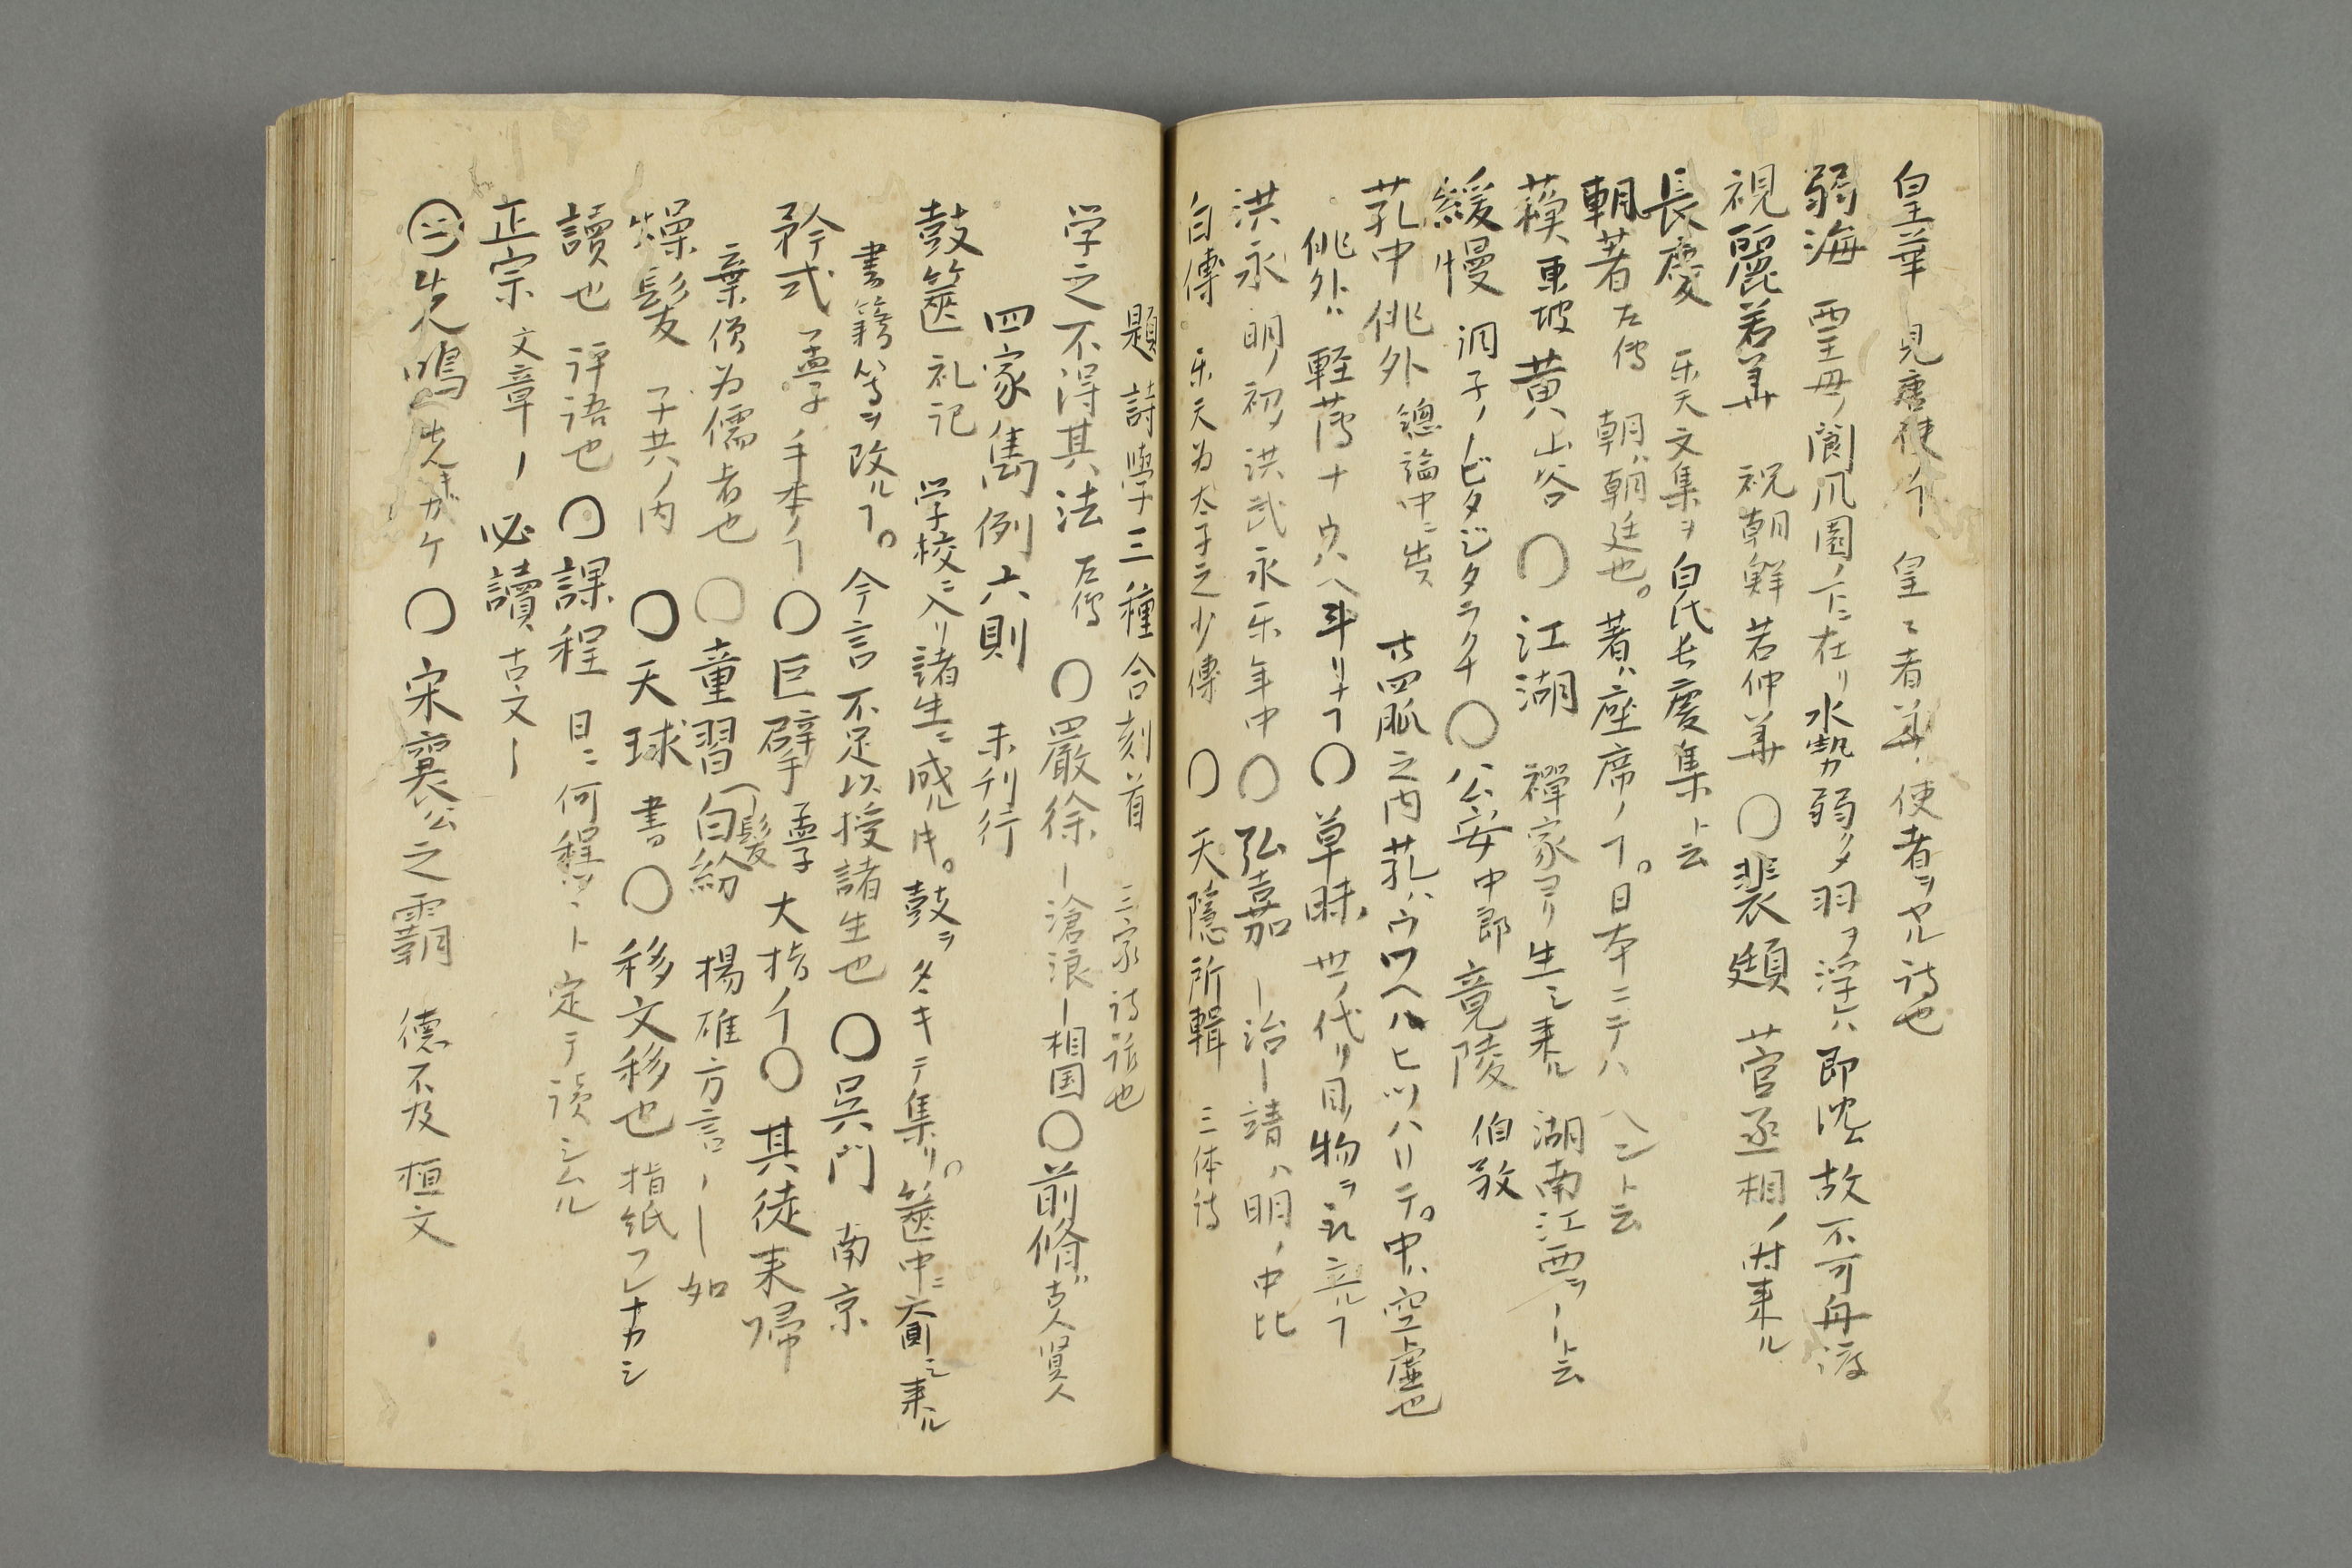 皇華 見唐使ヿ 皇々者華、使者ヲヤル詩也
弱海 西王母ノ閬风園ノ下ニ在リ水勢カ弱クタ羽ヲ浮ヘハ即沈ム故不可舟渡
視麗若華 祝朝鮮若仲華 〇裴頲 菅丞相ノ時来ル
長慶 乐天文集ヲ白氏长慶集ト云
朝著 左傳 朝ハ朝廷也。著ハ座席ノヿ。日本ニテハ ヘシト云
蘓東坡 黄山谷 〇江湖 禪家ヨリ生シ来ル 湖南江西ヲーート云
緩慢 調子ノノビタジタラクナ〇公安中郎 竟陵 伯敬
芤中俿外 總論中ニ出ス 廿四脈之内芤ハウワヘハヒツハリテ。中ハ空ト虚也
俿外ハ 軽薄ナ 〇草昧 世ノ代リ目物ヲ ヿ
洪永 明ノ初洪武永乐年中〇弘嘉 ー治ー靖ハ明ノ中比
白傳 乐天为太子之少傳 〇天隱所輯 三体詩
題詩學三種合刻首 三家詩話也
学之不得其法 左傳 〇嚴徐 ー滄浪ー相国〇前脩 古人賢人
四家雋例六則 未刊行
鼓篋 礼记 学校ニ入リ諸生ニ成ル时。鼓ヲタヽキテ集リ。篋中ニ シ来ル
書籍等ヲ改ルヿ。今言不足以授諸生也〇吳門 南京
矜式 孟子 手本ノヿ〇巨擘 孟子 大指ノヿ〇其徒来帰
棄僧为儒者也 〇童習(白紛 髪 揚雄方言ノー 如
燥髪 子共ノ内 〇天球 書 〇移文移也 指紙フレナカシ
讀也 評語也 〇課程 日ニ何程ツヽト定テ読シムル
正宗 文章ー 必讀 古文ー
㊁先鳴 先ガケ 〇宋襄公之霸 德不及桓文